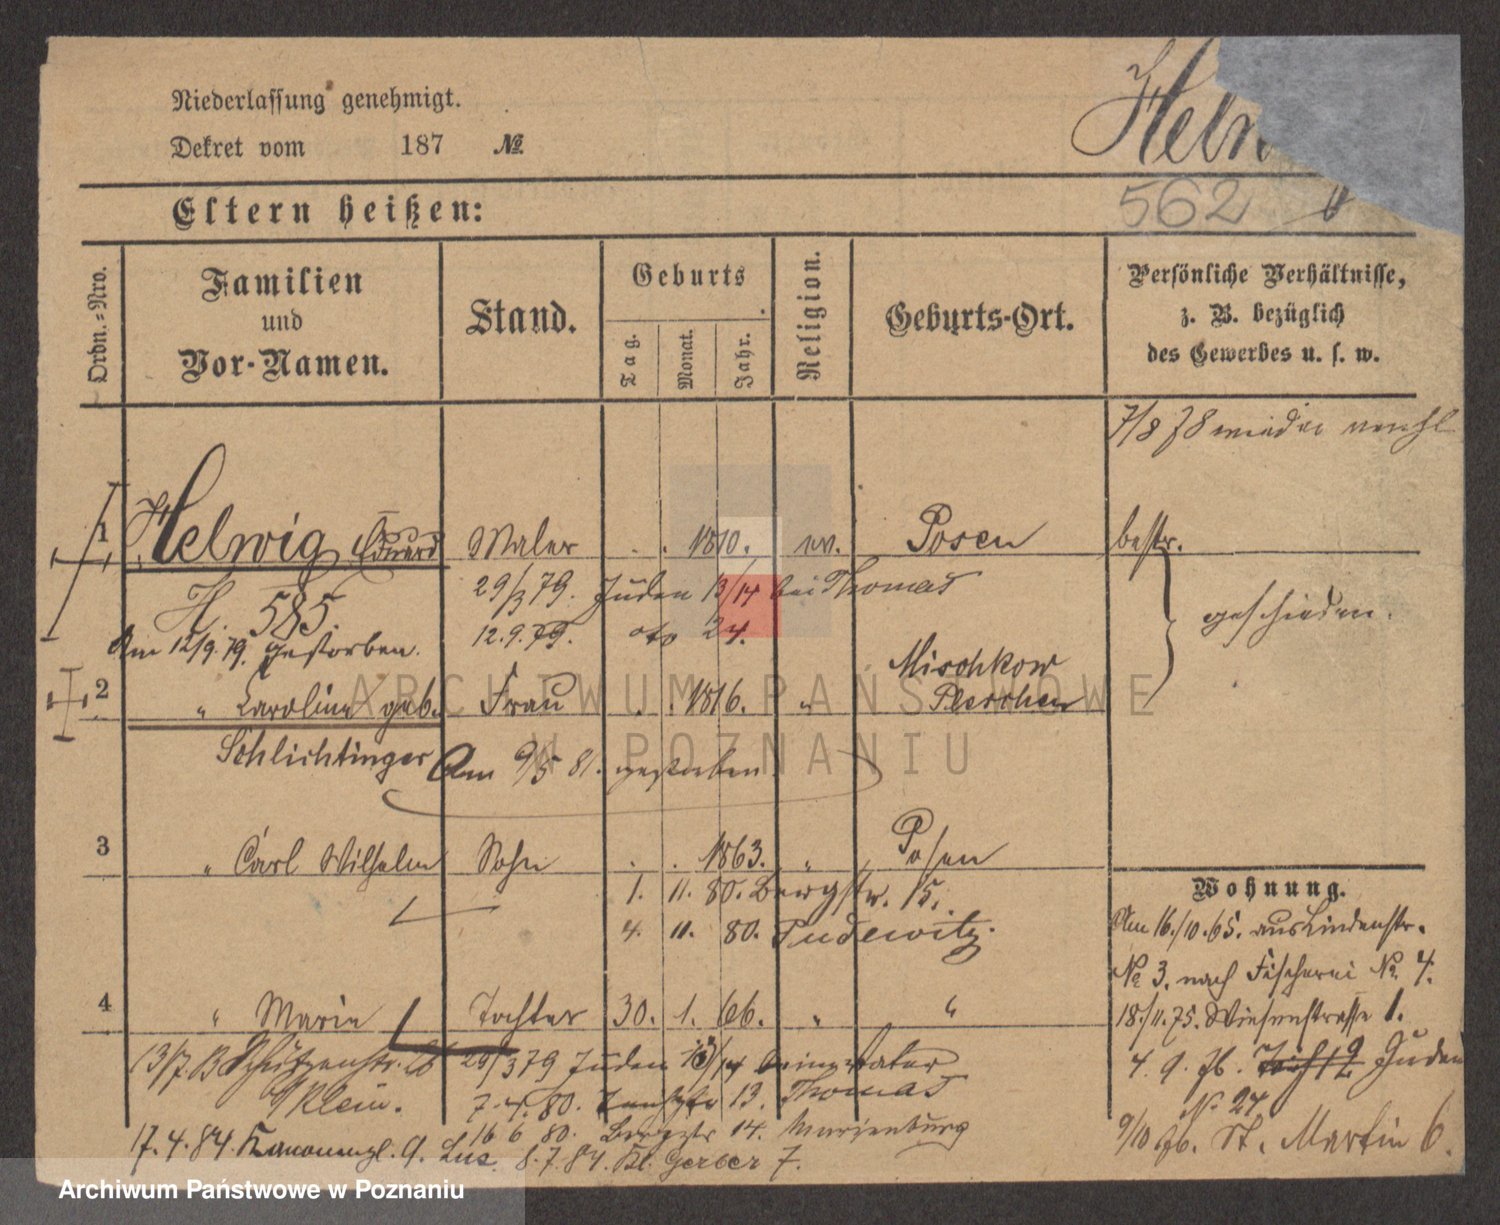 Niederlassung genehmigt.
Dekret vom 187 №
Helw
562
Eltern heißen:
Ordn.-Nro.
Familien
und
Vor-Namen.
Stand.
Geburts
Tag.
Monat.
Jahr.
Religion.
Geburts-Ort.
Persönliche Verhältnisse,
z. B. bezüglich
des Gewerbes u. s. w.
7/8 78 wieder
1 Helwig Eduard Maler . . 1810. ev. Posen bestr.
29/3 79. Juden 13/14 bei Thomas
H. 585. geschieden.
12.9.79. oto 24.
Am 12/9.79. gestorben.
Mischkow
2 " Caroline geb. Frau . . 1816. " Pleschen
Schlichtinger Am 9/5 81. gestorben
3 " Carl Wilhelm Sohn . . 1863. " Posen
1. 11. 80. Bergstr. 15.
4. 11. 80. Pudewitz.
Wohnung.
Am 16./10.65. aus Lindenstr.
№ 3. nach Fischerei № 4.
4 " Marie Tochter 30. 1. 66. " "
18./11.75. Wiesenstrasse 1.
13/7 Schützenstr.
29/3 79 Juden 13/14 beim Vater
4. 9. 76. Juden
Klein.
7.4.80. 13. Thomas
№ 24
16 6 80. Bergstr 14. Marienburg
9/10 76. St. Martin 6.
17.4.84. Kanonenpl. 9. Lus. 8.7.84. Kl. Gerber 7.
ARCHIWUM PAŃSTWOWE
W POZNANIU
Archiwum Państwowe w Poznaniu